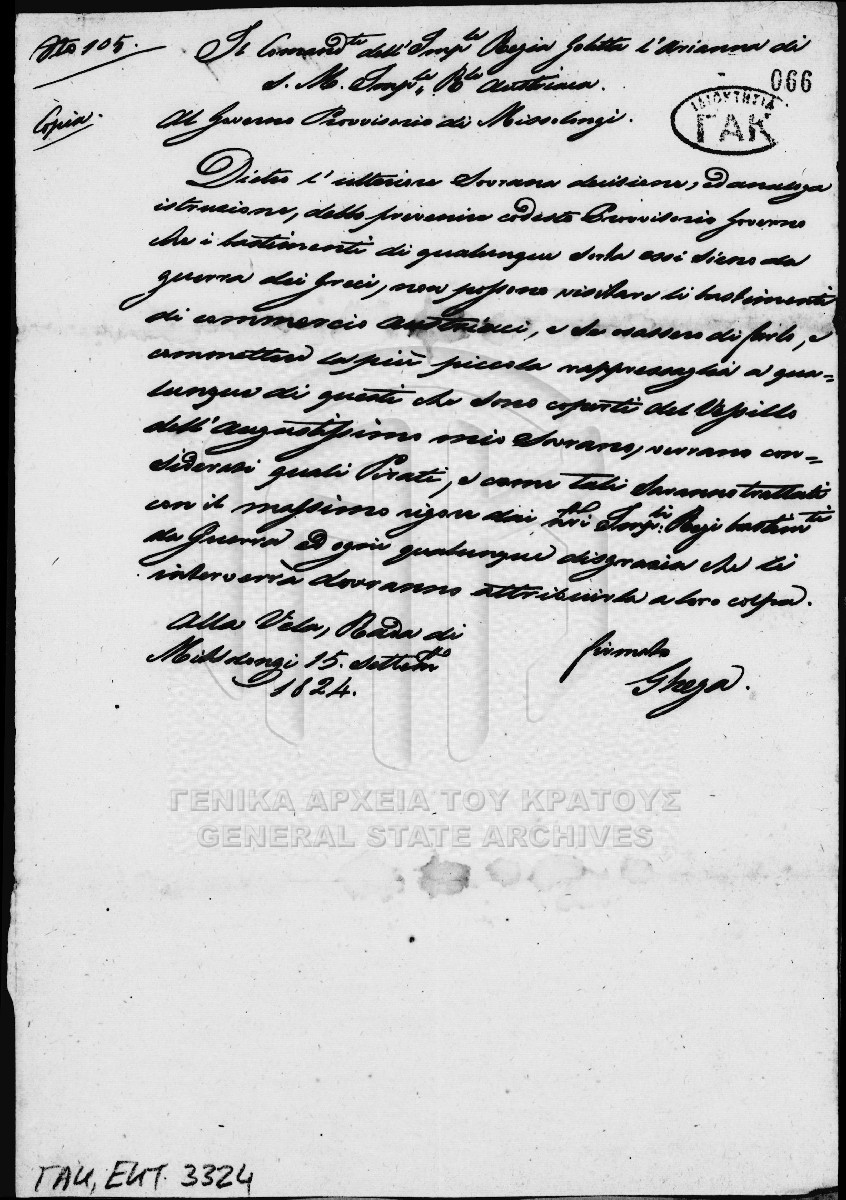 N.º 105.
Il Comand.te dell'Imp.le Regia Goletta l'Arianna di
S. M. Imp.le R.le Austriaca.
066
ΙΔΙΟΚΤΗΣΙΑ
ΓΑΚ
Copia.
Al Governo Provvisorio di Missolongi.
Dietro l'ulteriore Sovrana decisione, ed analoga
istruzione, debbo prevenire codesto Provvisorio Governo
che i bastimenti di qualunque sorta essi sieno da
guerra dei Greci, non possono visitare li bastimenti
di commercio Austriaci, e se osassero di farlo, e
commettere la più piccola rappressaglia a qua-
lunque di questi che sono coperti del Vessillo
dell'Augustissimo mio Sovrano, verrano con-
siderati quali Pirati, e come tali saranno trattati
con il massimo rigore dai Imp.li Regi bastim.ti
da Guerra ed ogni qualunque disgrazia che li
interverrà dovranno attribuirla a loro colpa.
Alla Vela, Rada di
Missolongi 15. Settem.bre
1824.
firmato
Ghega.
ΓΕΝΙΚΑ ΑΡΧΕΙΑ ΤΟΥ ΚΡΑΤΟΥΣ
GENERAL STATE ARCHIVES
ΓΑΚ, ΕΚΤ. 3324